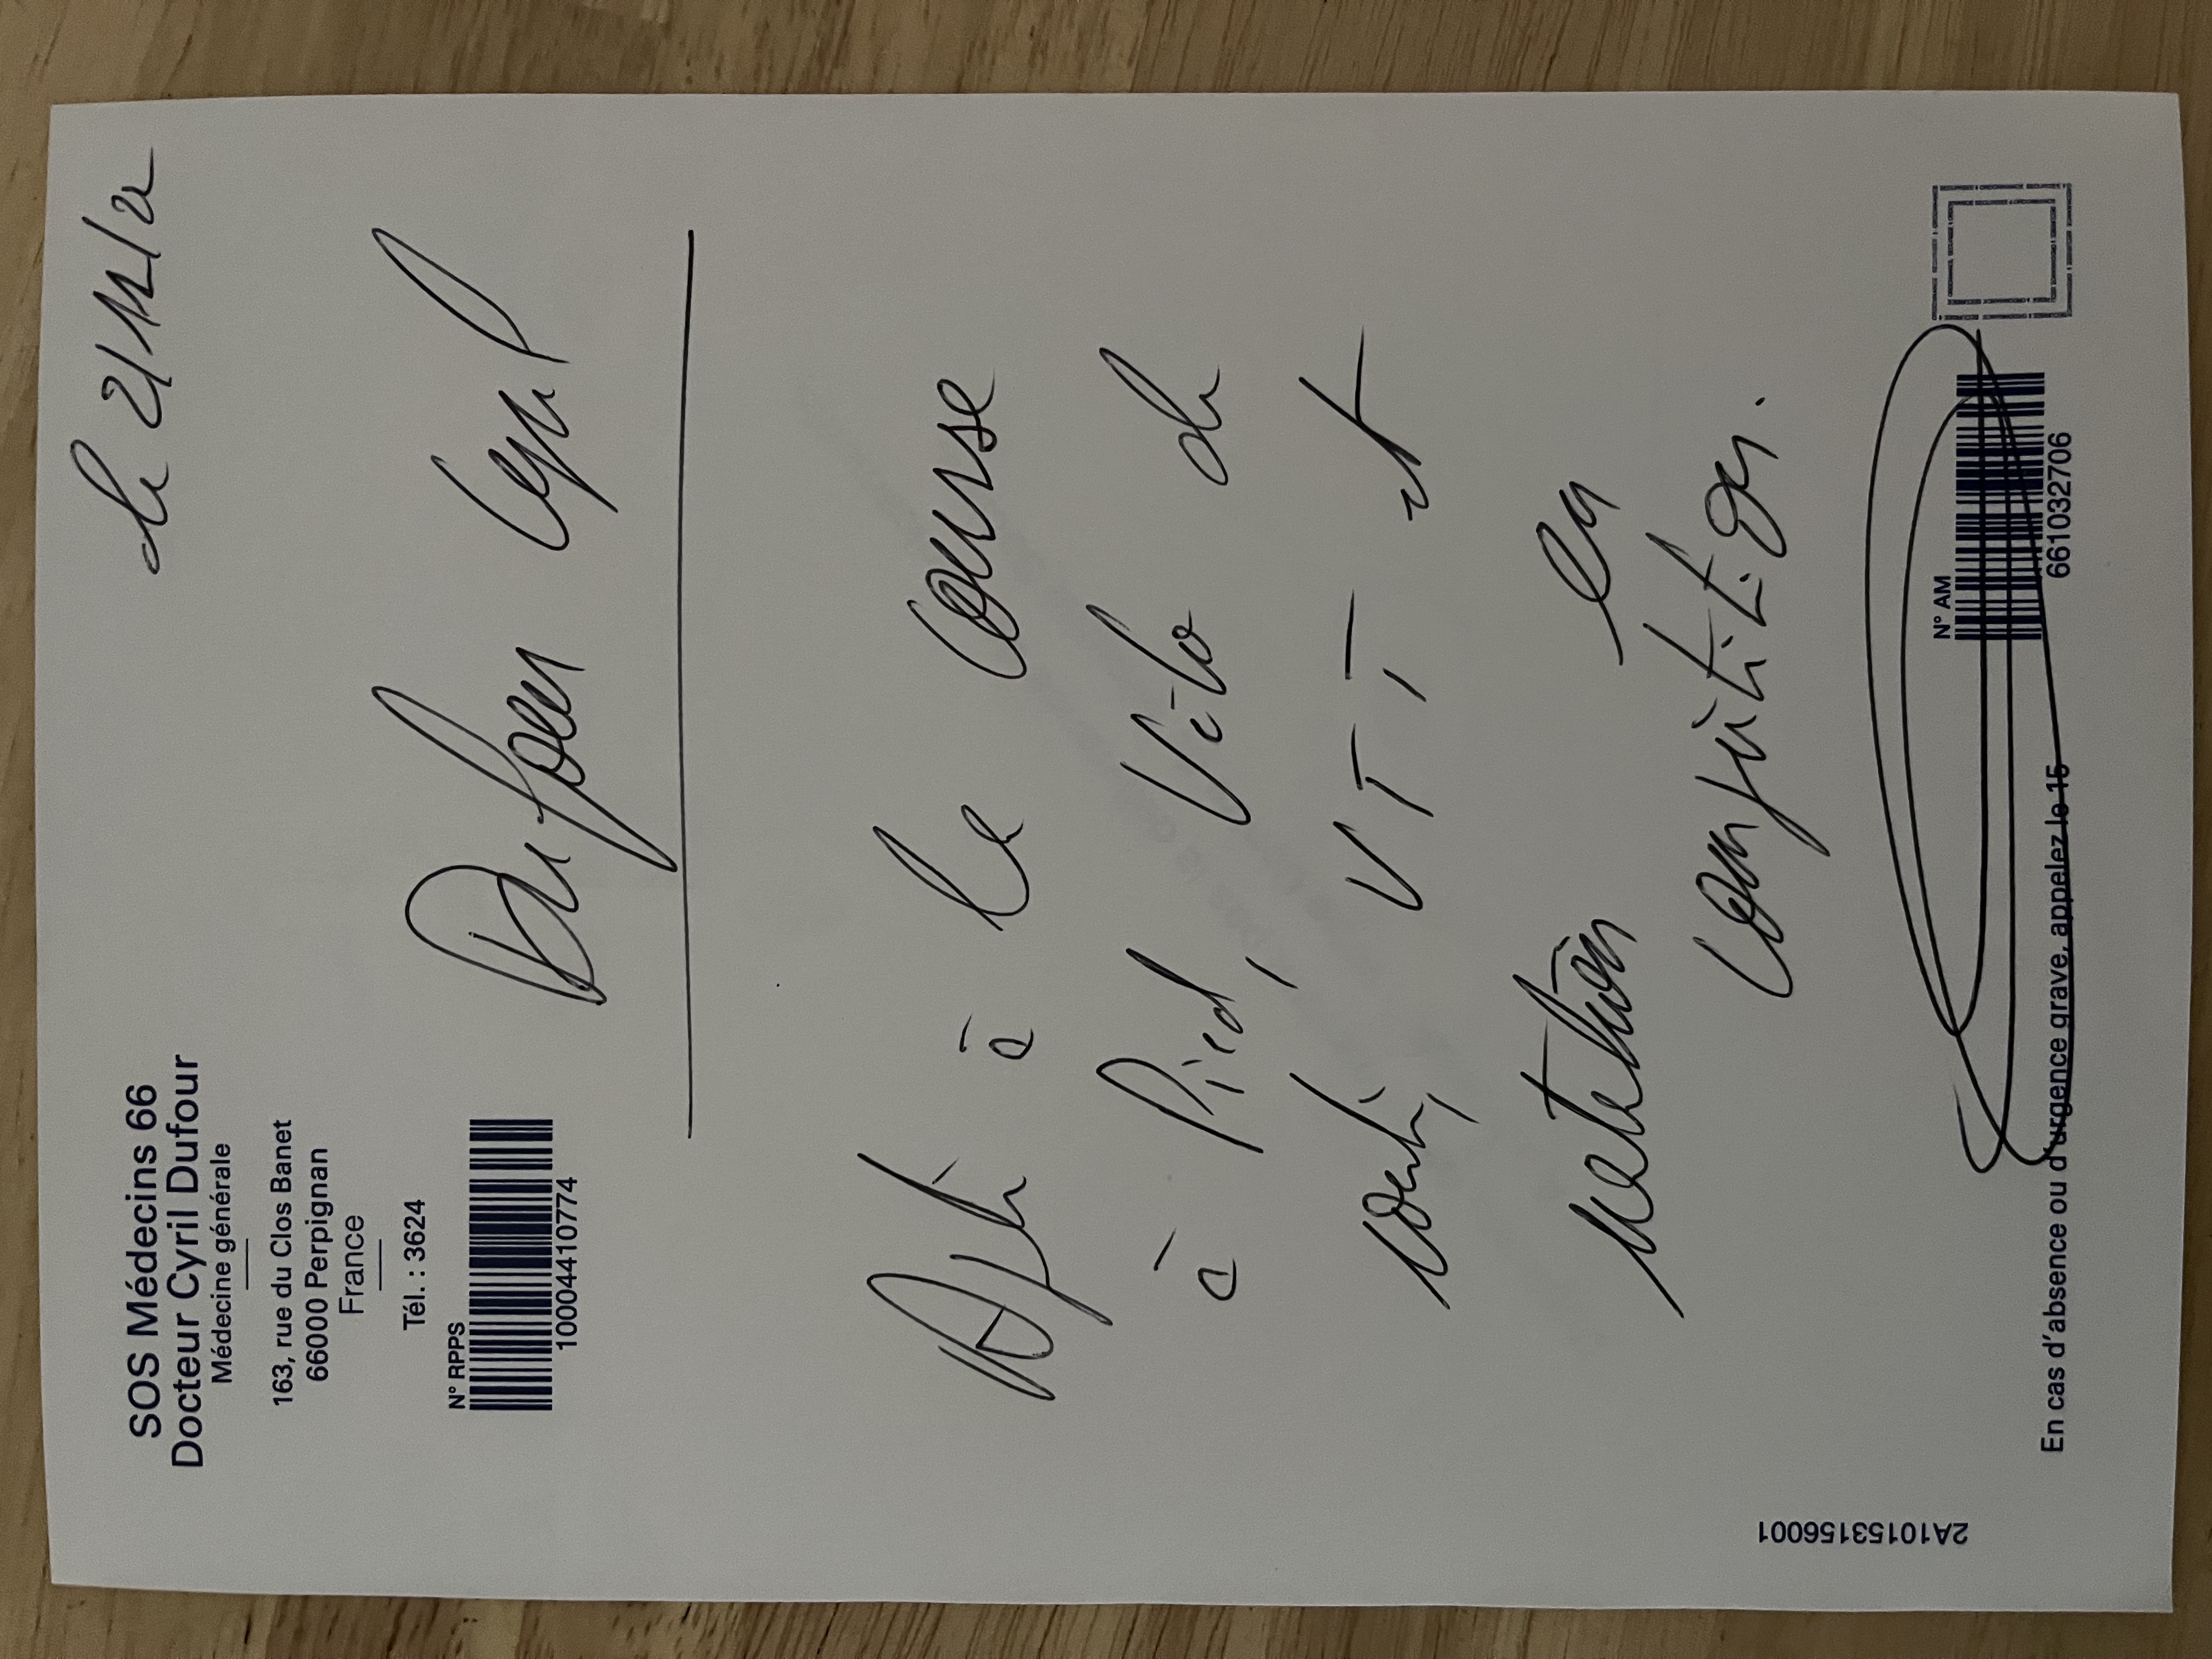 SOS Médecins 66
Docteur Cyril Dufour
Médecine générale
163, rue du Clos Banet
66000 Perpignan
France
Tél. : 3624
N° RPPS
10004410774
le 21/12/22
Dufour Cyril
Apte à la course
à Pied, Vélo de
route, VTT et
natation en
compétition.
N° AM
661032706
En cas d'absence ou d'urgence grave, appelez le 15
2A10153156001